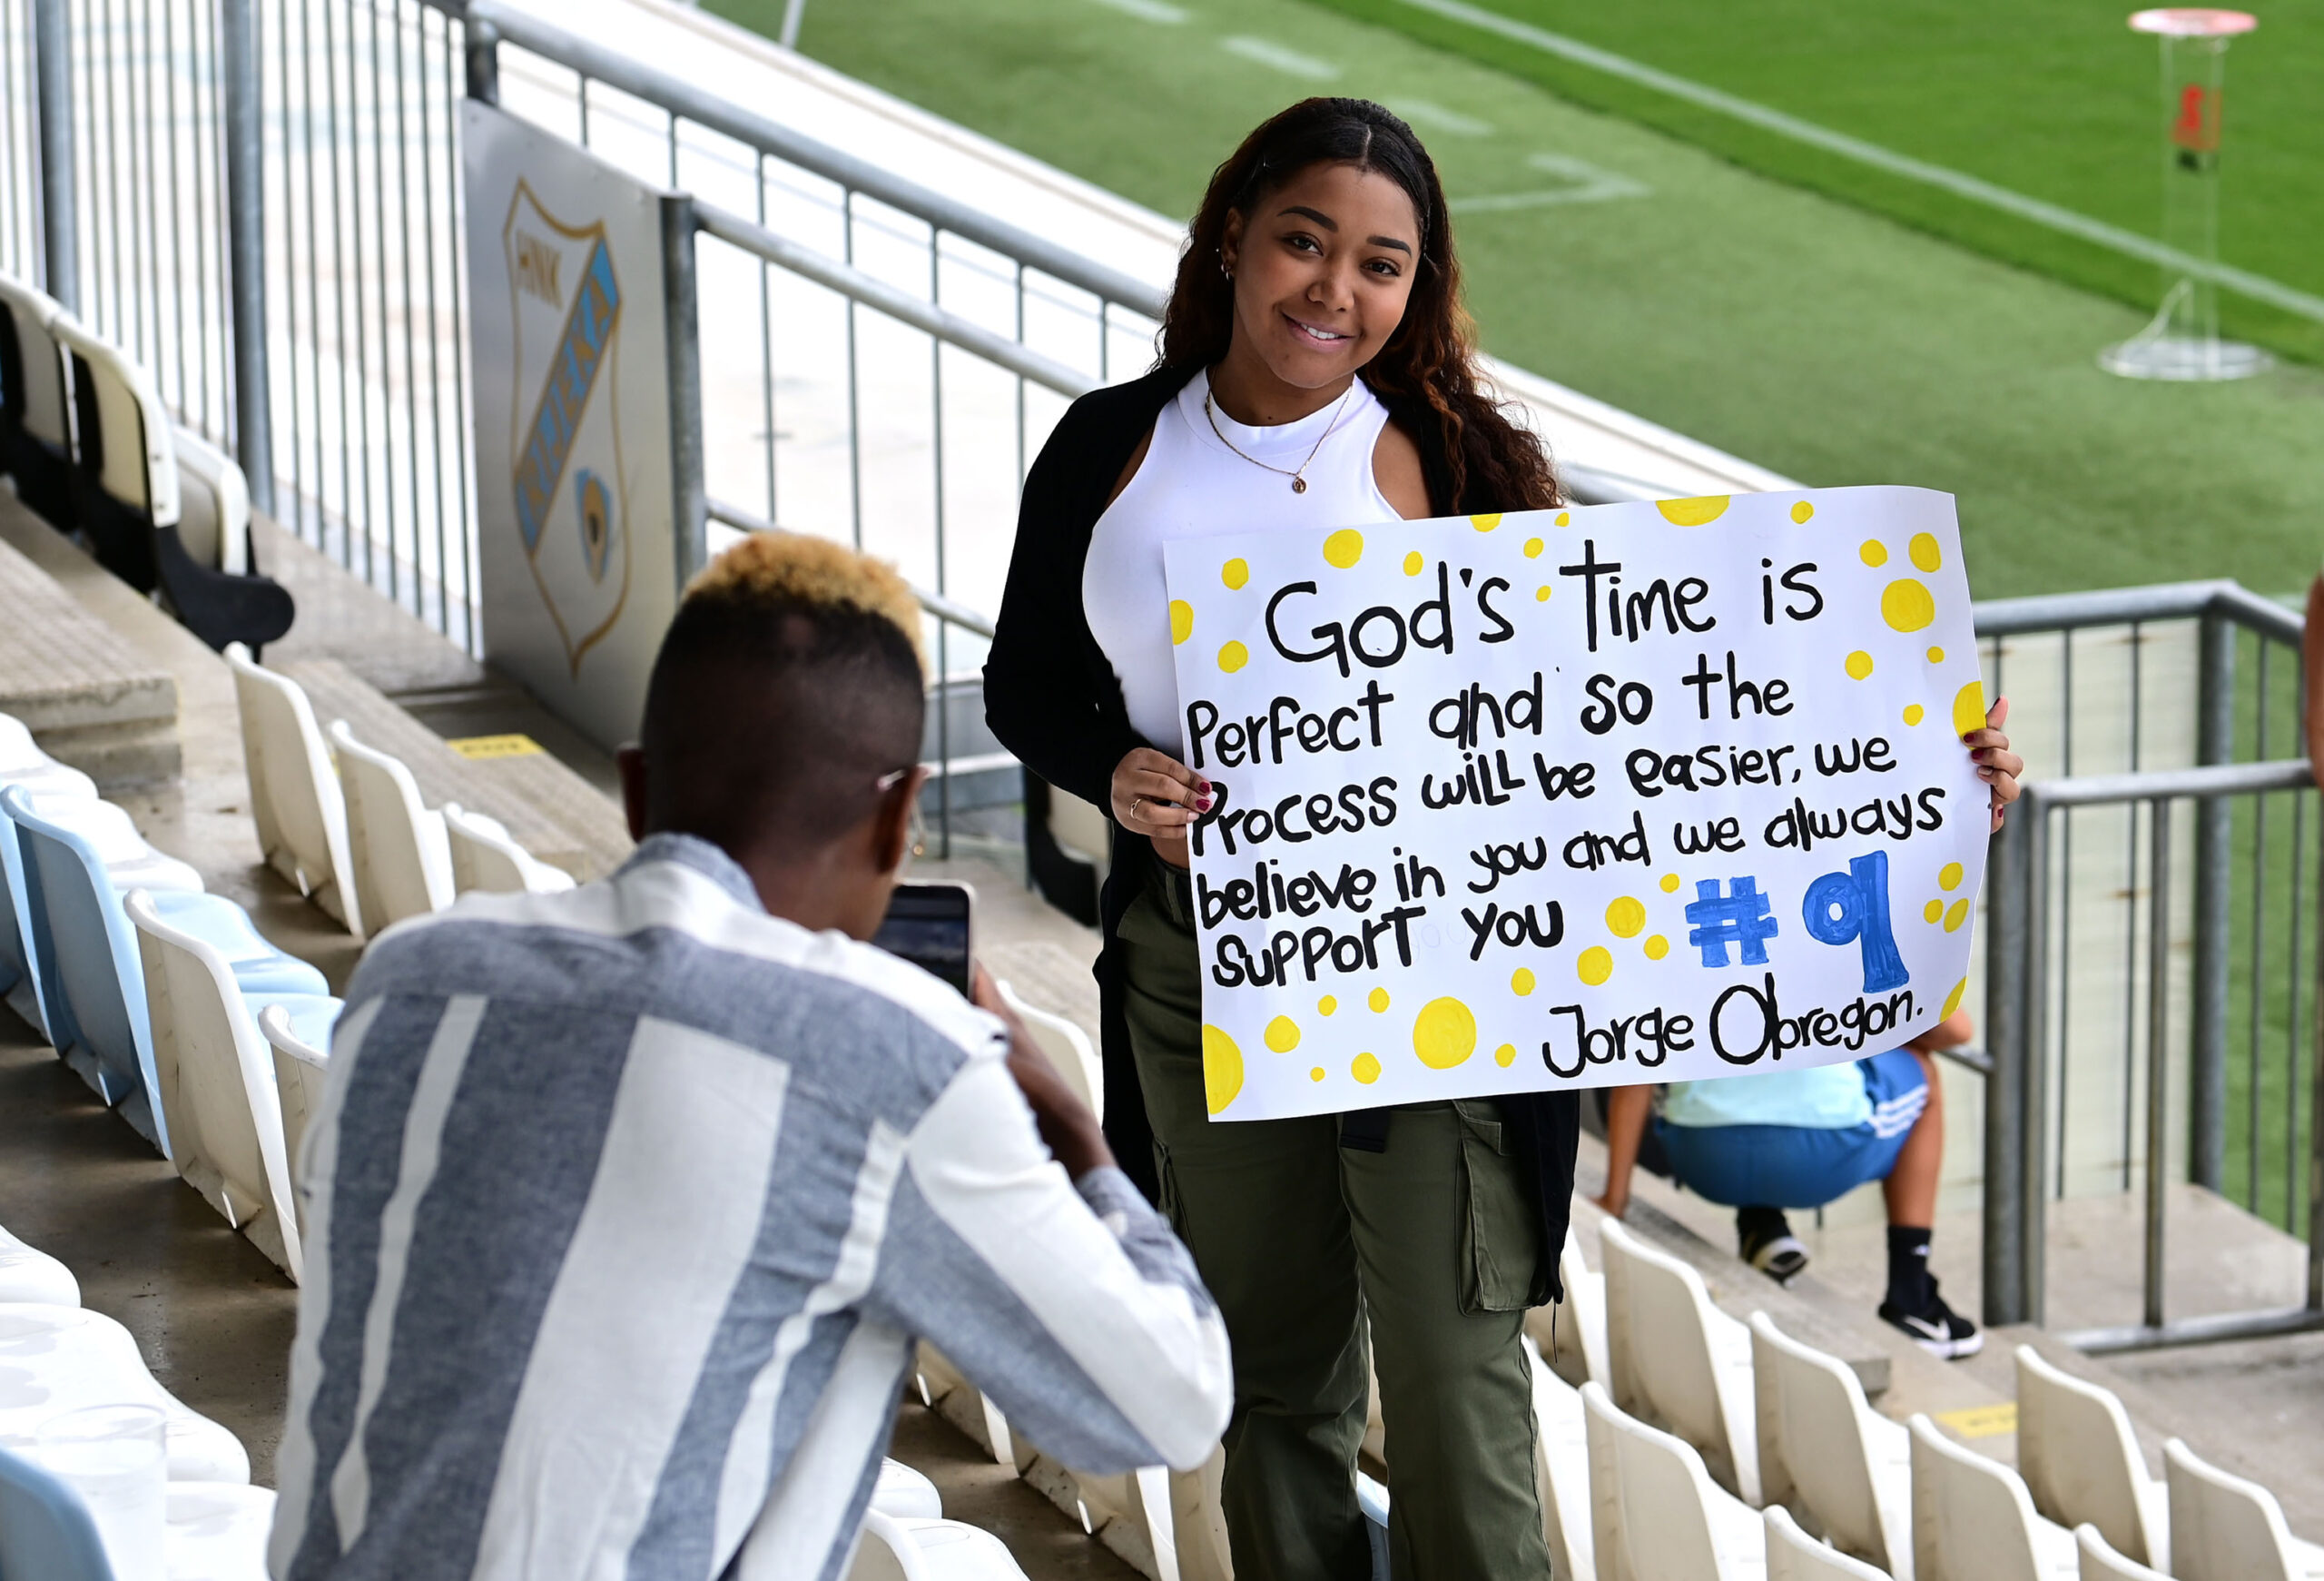 HNK
RIJEKA
God's time is
Perfect and so the
Process will be easier, we
believe in you and we always
support you #9
Jorge Obregon.